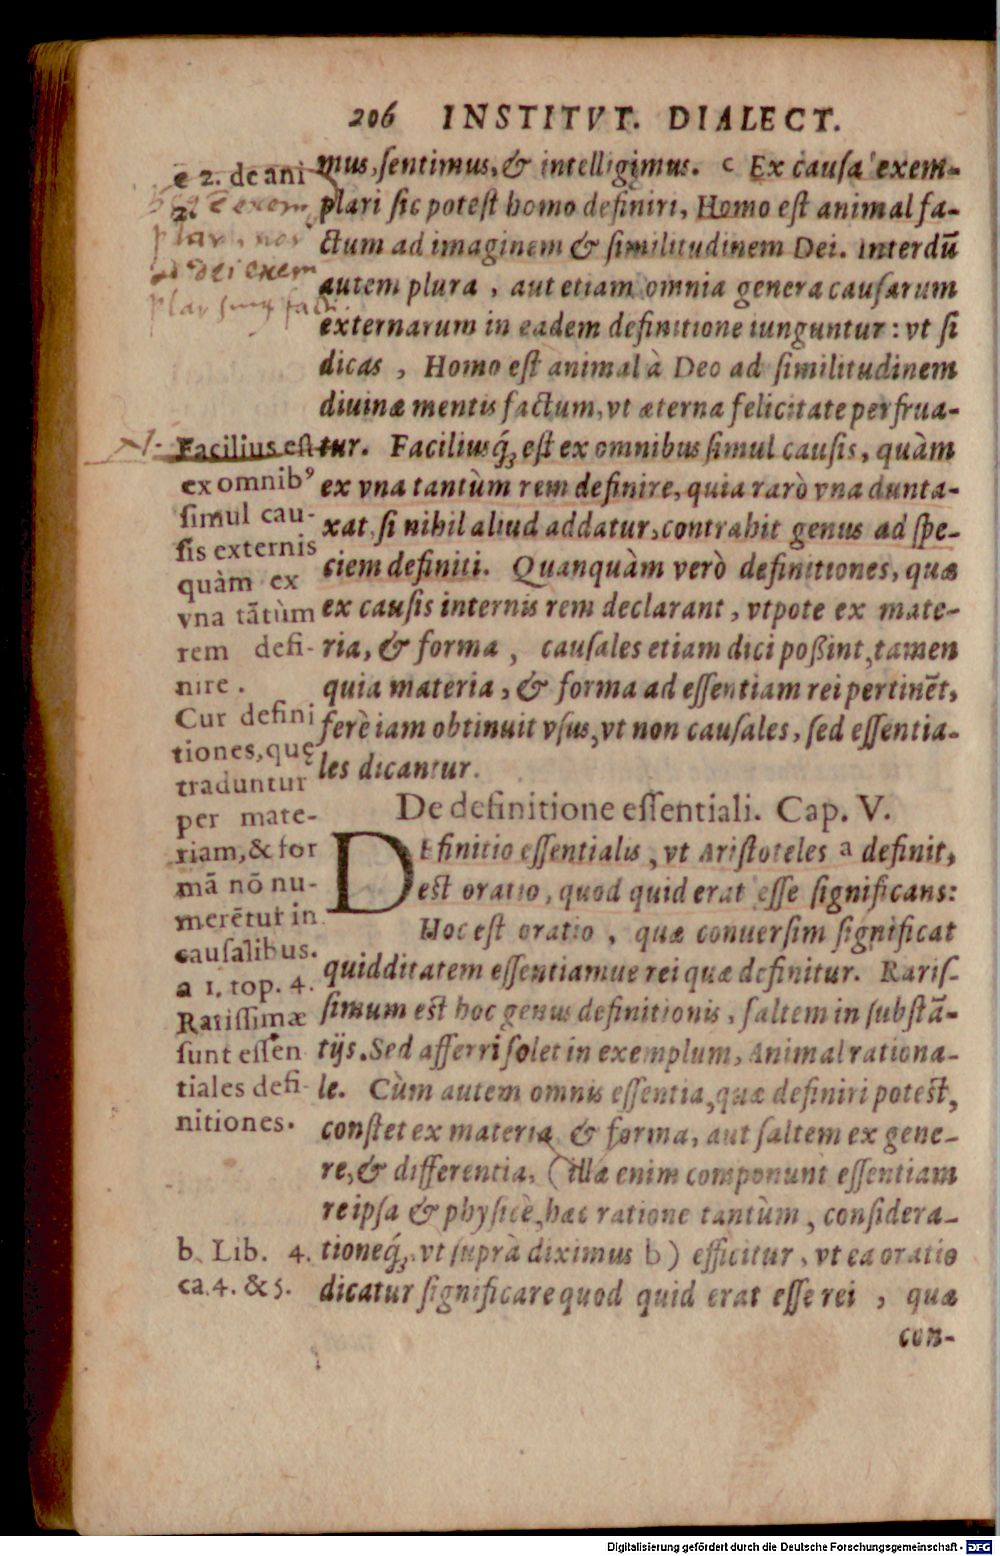 206 INSTITVT. DIALECT.
mus, sentimus, & intelligimus. c Ex causa exem-
plari sic potest homo definiri, Homo est animal fa-
ctum ad imaginem & similitudinem Dei. Interdũ
autem plura, aut etiam omnia genera causarum
externarum in eadem definitione iunguntur: vt si
dicas, Homo est animal à Deo ad similitudinem
diuinæ mentis factum, vt æterna felicitate perfrua-
tur. Faciliusq́; est ex omnibus simul causis, quàm
ex vna tantùm rem definire, quia rarò vna dunta-
xat, si nihil aliud addatur, contrahit genus ad spe-
ciem definiti. Quanquàm verò definitiones, quæ
ex causis internis rem declarant, vtpote ex mate-
ria, & forma, causales etiam dici poßint, tamen
quia materia, & forma ad essentiam rei pertinẽt,
ferè iam obtinuit vsus, vt non causales, sed essentia-
les dicantur.
De definitione essentiali. Cap. V.
DEfinitio essentialis, vt Aristoteles a definit,
est oratio, quod quid erat esse significans:
Hoc est oratio, quæ conuersim significat
quidditatem essentiamue rei quæ definitur. Raris-
simum est hoc genus definitionis, saltem in substã-
tijs. Sed afferri solet in exemplum, Animal rationa-
le. Cùm autem omnis essentia, quæ definiri potest,
constet ex materia & forma, aut saltem ex gene-
re, & differentia, (illæ enim componunt essentiam
reipsa & physicè, hæc ratione tantùm, considera-
tioneq́;, vt suprà diximus b) efficitur, vt ea oratio
dicatur significare quod quid erat esse rei, quæ
con-
c 2. de ani
2.
Facilius est
ex omnibꝰ
simul cau-
sis externis
quàm ex
vna tãtùm
rem defi-
nire.
Cur defini
tiones, quę
traduntur
per mate-
riam, & for
mã nõ nu-
merẽtur in
causalibus.
a 1. top. 4.
Rarissimæ
sunt essen
tiales defi-
nitiones.
b. Lib. 4.
ca. 4. & 5.
Digitalisierung gefördert durch die Deutsche Forschungsgemeinschaft - DFG